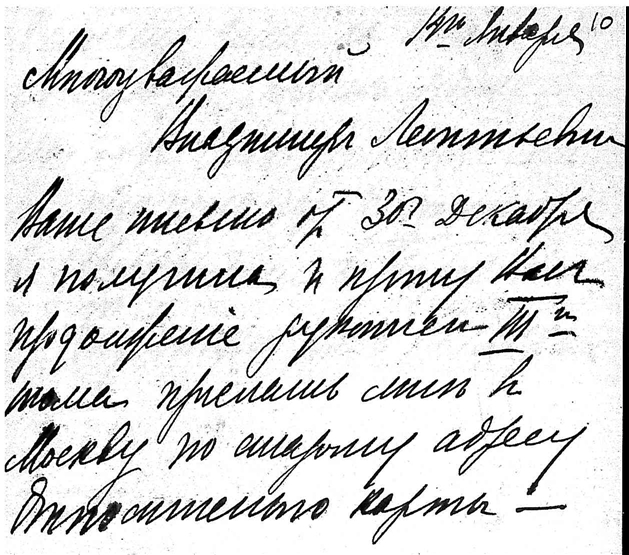 10
Января
Многоуважаемый
Владимиръ Леонтьевичъ
Ваше письмо от 30го Декабря
я получила и прошу Васъ
продолженіе рукописи III го
тома прислать мнѣ в
Москву по старому адресу
Относительно карты —